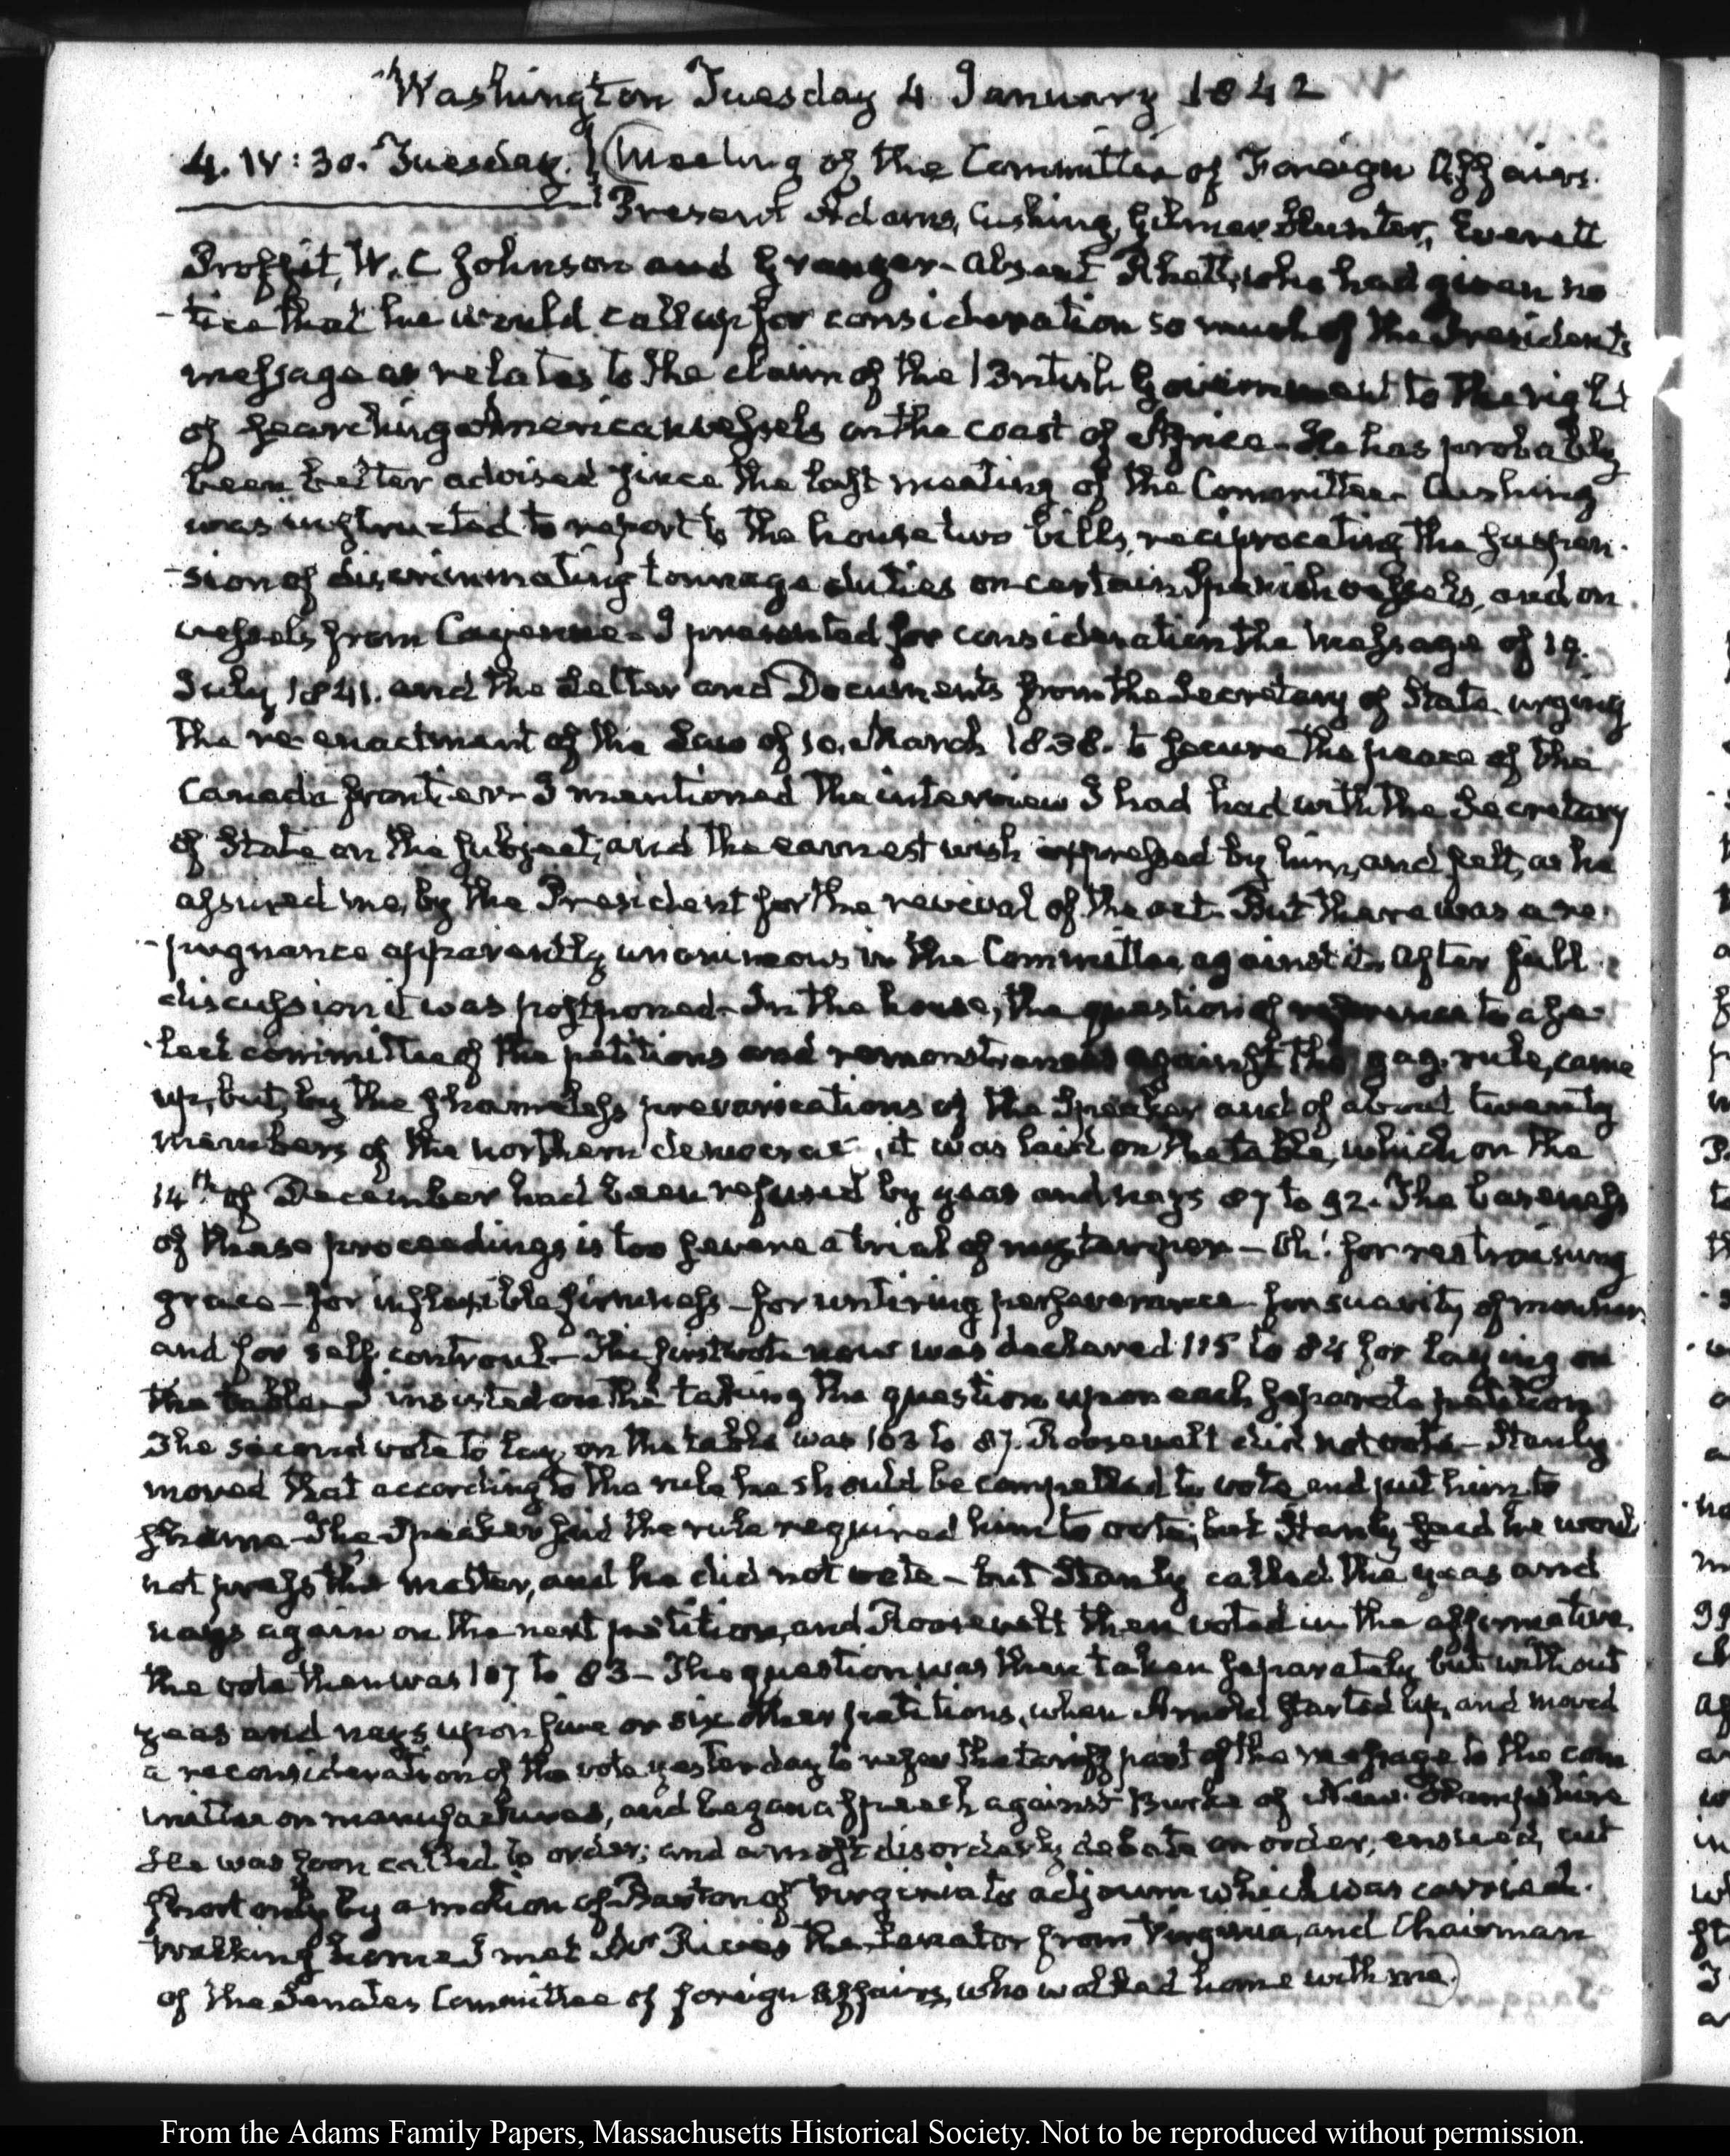 Washington Tuesday 4 January 1842
4. IV:30. Tuesday. Meeting of the Committee of Foreign Affairs.
Present Adams, Cushing, Gilmer, Hunter, Everett
Proffit, W. C Johnson and Granger - absent Rhett, who had given no
-tice that he would call up for consideration so much of the Presidents
message as relates to the claim of the British Government to the right
of searching American vessels on the coast of Africa - He has probably
been better advised since the last meeting of the Committee - Cushing
was instructed to report to the house two bills, reciprocating the suspen-
-sion of discriminating tonnage duties on certain Spanish vessels, and on
vessels from Cayenne - I presented for consideration the Message of 19.
July 1841. and the Letter and Documents from the Secretary of State urging
the re-enactment of the Law of 10. March 1838. to secure the peace of the
Canada frontier - I mentioned the interview I had had with the Secretary
of State on the subject, and the earnest wish expressed by him, and felt, as he
assured me, by the President for the revival of the act. But there was a re-
-pugnance apparently unanimous in the Committee against it. After full
discussion it was postponed - In the house, the question of reference to a se-
-lect committee of the petitions and remonstrances against the gag-rule, came
up, but, by the shameless prevarications of the Speaker and of about twenty
members of the northern democrac , it was laid on the table, which on the
14th of December had been refused by yeas and nays 87 to 92. The baseness
of these proceedings is too severe a trial of my temper - Oh! for restraining
grace - for inflexible firmness - for untiring perseverance - for suavity of manner
and for self controul - The first vote now was declared 115 to 84 for laying on
the table - I insisted on the taking the question upon each separate petition
The second vote to lay on the table was 103 to 87. Roosevelt did not vote - Stanly
moved that according to the rule he should be compelled to vote and put him to
shame - The Speaker said the rule required him to vote; but Stanly said he would
not press the matter, and he did not vote - but Stanly called the yeas and
nays again on the next petition, and Roosevelt then voted in the affirmative,
the vote then was 107 to 83 - The question was then taken separately but without
yeas and nays upon five or six other petitions, when Arnold started up, and moved
a reconsideration of the vote yesterday to refer the tariff part of the message to the com
mittee on manufactures, and began a speech against Burke of New-Hampshire
He was soon called to order; and a most disorderly debate on order, ensued, cut
short only by a motion of Barton of Virginia to adjourn which was carried.
Walking home I met Mr Rives the Senator from Virginia, and Chairman
of the Senates Committee of foreign Affairs, who walked home with me.
From the Adams Family Papers, Massachusetts Historical Society. Not to be reproduced without permission.